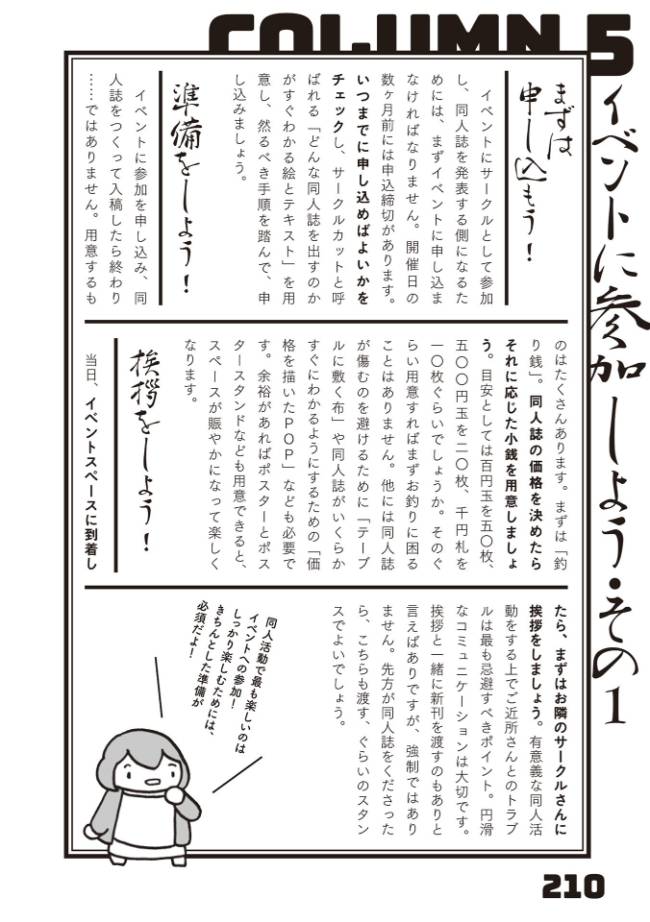 COLUMN 5
イベントに参加しよう・その1
まずは
申し込もう！
　イベントにサークルとして参加
し、同人誌を発表する側になるた
めには、まずイベントに申し込ま
なければなりません。開催日の
数ヶ月前には申込締切があります。
いつまでに申し込めばよいかを
チェックし、サークルカットと呼
ばれる「どんな同人誌を出すのか
がすぐわかる絵とテキスト」を用
意し、然るべき手順を踏んで、申
し込みましょう。
準備をしよう！
　イベントに参加を申し込み、同
人誌をつくって入稿したら終わり
……ではありません。用意するも
のはたくさんあります。まずは「釣
り銭」。同人誌の価格を決めたら
それに応じた小銭を用意しましょ
う。目安としては百円玉を五〇枚、
五〇〇円玉を二〇枚、千円札を
一〇枚ぐらいでしょうか。そのぐ
らい用意すればまずお釣りに困る
ことはありません。他には同人誌
が傷むのを避けるために「テーブ
ルに敷く布」や同人誌がいくらか
すぐにわかるようにするための「価
格を描いたPOP」なども必要で
す。余裕があればポスターとポス
タースタンドなども用意できると、
スペースが賑やかになって楽しく
なります。
挨拶をしよう！
　当日、イベントスペースに到着し
たら、まずはお隣のサークルさんに
挨拶をしましょう。有意義な同人活
動をする上でご近所さんとのトラブ
ルは最も忌避すべきポイント。円滑
なコミュニケーションは大切です。
挨拶と一緒に新刊を渡すのもありと
言えばありですが、強制ではあり
ません。先方が同人誌をくださった
ら、こちらも渡す、ぐらいのスタン
スでよいでしょう。
同人活動で最も楽しいのは
イベントへの参加！
しっかり楽しむためには、
きちんとした準備が
必須だよ！
210